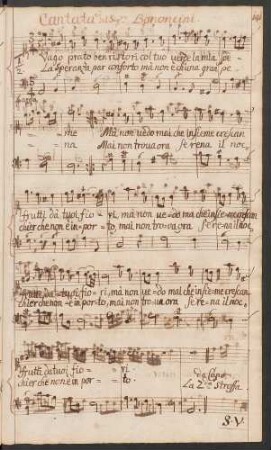 Cantata del Sig.r Bononcini
Vago prato ben ristori col tuo verde la mia spe
La speranza par conforto mà non è ch'una gran pe
ne Mà non vedo mai che insieme crescan
na Mai non trova ora serena il noc
frutti da tuoi fio - ri, mà non ve - do ma che insieme crescan
chier che non è in por - to, mai non trova ora Serena il noc
frutti da tuoi fio - ri, mà non ve - do mai che insieme crescan
chier che non è in porto, mai non trova ora Se re - na il noc
frutti da tuoi fio - ri
chier che non è in por - to.
da Capo
La 2.da Stroffa
S. V.